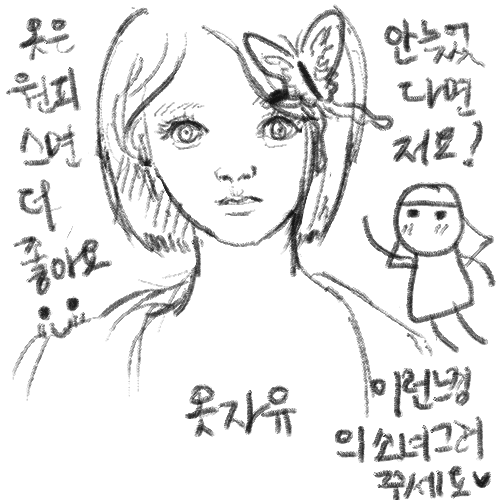 옷은
원피
스면
더
좋아요
안늦었
다면
저요!
옷자유
이런느낌
의 소녀그려
주세요♥